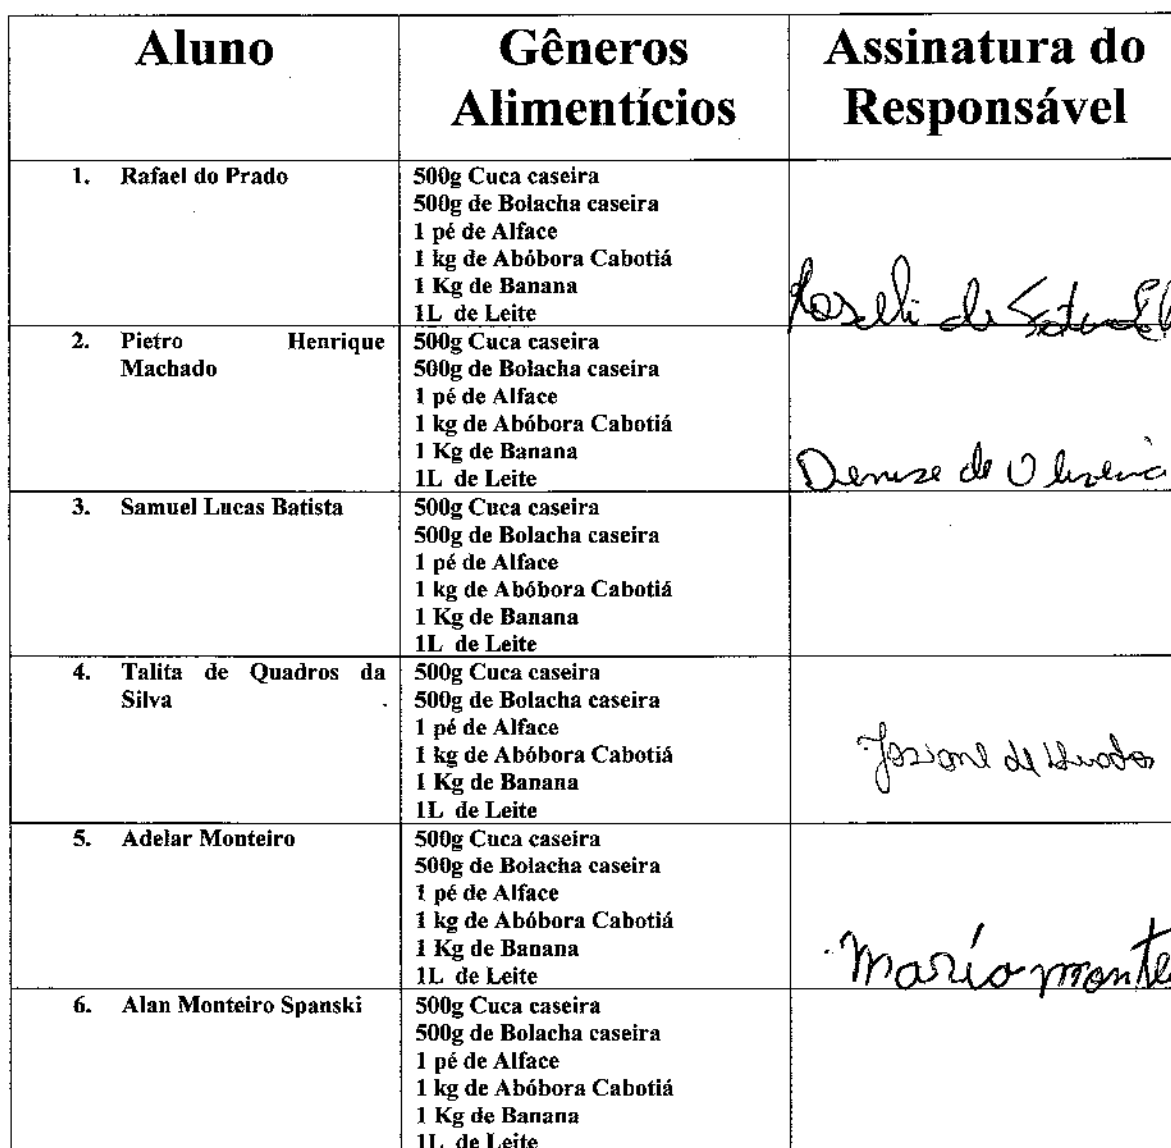 Aluno
Gêneros
Alimentícios
Assinatura do
Responsável
1. Rafael do Prado
500g Cuca caseira
500g de Bolacha caseira
1 pé de Alface
1 kg de Abóbora Cabotiá
1 Kg de Banana
1L de Leite
Roseli de
2. Pietro Henrique
Machado
500g Cuca caseira
500g de Bolacha caseira
1 pé de Alface
1 kg de Abóbora Cabotiá
1 Kg de Banana
1L de Leite
Denise de Oliveira
3. Samuel Lucas Batista
500g Cuca caseira
500g de Bolacha caseira
1 pé de Alface
1 kg de Abóbora Cabotiá
1 Kg de Banana
1L de Leite
4. Talita de Quadros da
Silva
500g Cuca caseira
500g de Bolacha caseira
1 pé de Alface
1 kg de Abóbora Cabotiá
1 Kg de Banana
1L de Leite
Josiane de Quadros
5. Adelar Monteiro
500g Cuca caseira
500g de Bolacha caseira
1 pé de Alface
1 kg de Abóbora Cabotiá
1 Kg de Banana
1L de Leite
Mario Monte
6. Alan Monteiro Spanski
500g Cuca caseira
500g de Bolacha caseira
1 pé de Alface
1 kg de Abóbora Cabotiá
1 Kg de Banana
1L de Leite